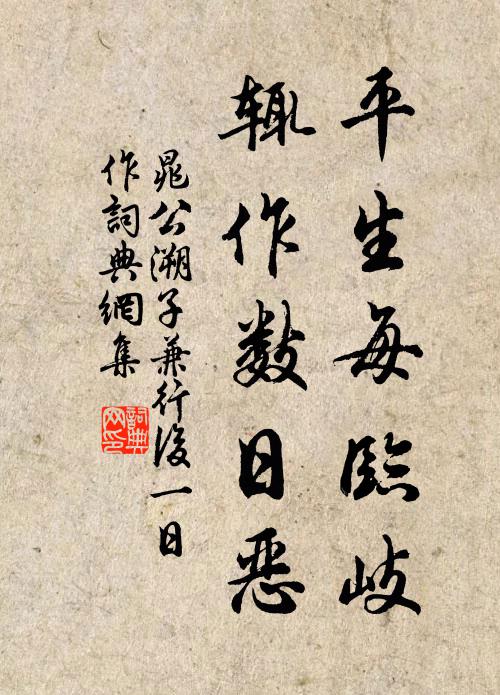 平生每臨歧
輒作數日惡
晁公溯子兼行後一日
作詞典網集
詞典网印